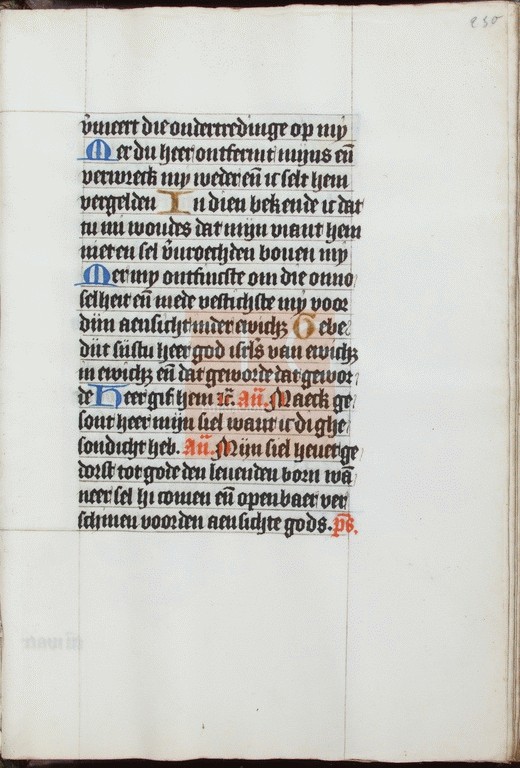 250
v̄meert die ondertredinge op my
Mer du heer ontfermt mijns en̄
verwreck my weder en̄ ic selt hem
vergelden In dien bekende ic dat
tu mi woudes dat mijn viant hem
niet en sel v̄vroechden bouen my
Mer my ontfincste om die onno
selheit en̄ mede vestichste my voor
dijn aensicht inder ewichz Gebe
dijt sijstu heer god isrls van ewichz
in ewichz en̄ dat geworde dat gewor
de Heer gif hem Añ. Maeck ge
sont heer mijn siel want ic di ghe
sondicht heb. Añ. Mijn siel heuetge
dorst tot gode den leuenden born wā
neer sel hi comen en̄ openbaer ver
schinen voorden aensichte gods. ps̄.